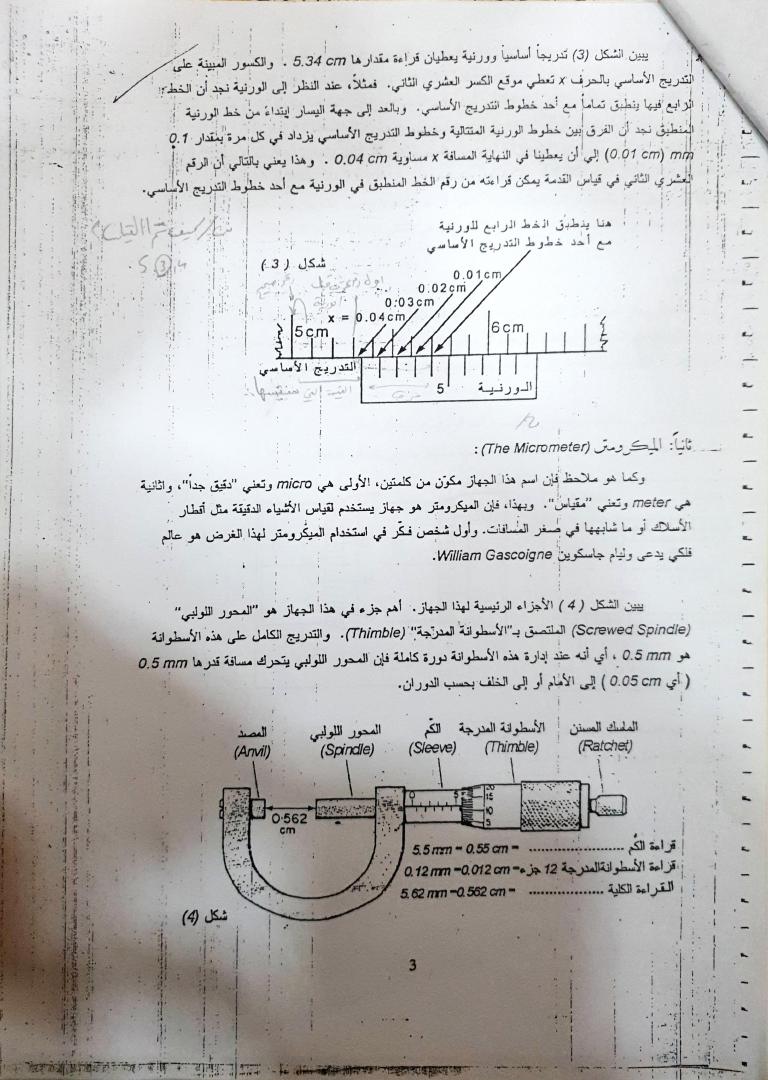 يبين الشكل (3) تدريجاً أساسياً وورنية يعطيان قراءة مقدارها 5.34 cm . والكسور المبينة على
التدريج الأساسي بالحرف x تعطي موقع الكسر العشري الثاني. فمثلاً، عند النظر إلى الورنية نجد أن الخط
الرابع فيها ينطبق تماماً مع أحد خطوط التدريج الأساسي. وبالعد إلى جهة اليسار إبتداءً من خط الورنية
المنطبق نجد أن الفرق بين خطوط الورنية المتتالية وخطوط التدريج الأساسي يزداد في كل مرة بمقدار 0.1
mm (0.01 cm) إلى أن يعطينا في النهاية المسافة x مساوية 0.04 cm . وهذا يعني بالتالي أن الرقم
العشري الثاني في قياس القدمة يمكن قراءته من رقم الخط المنطبق في الورنية مع أحد خطوط التدريج الأساسي.
هنا ينطبق الخط الرابع للورنية
مع أحد خطوط التدريج الأساسي
شكل (3)
0.01cm
0.02cm
0.03cm
x = 0.04cm
5cm
6cm
التدريج الأساسي
5
الورنية
ثانياً: الميكرومتر (The Micrometer) :
وكما هو ملاحظ فإن اسم هذا الجهاز مكوّن من كلمتين، الأولى هي micro وتعني "دقيق جداً"، واثانية
هي meter وتعني "مقياس". وبهذا، فإن الميكرومتر هو جهاز يستخدم لقياس الأشياء الدقيقة مثل أقطار
الأسلاك أو ما شابهها في صغر المسافات. وأول شخص فكّر في استخدام الميكرومتر لهذا الغرض هو عالم
فلكي يدعى وليام جاسكوين William Gascoigne.
يبين الشكل (4) الأجزاء الرئيسية لهذا الجهاز. أهم جزء في هذا الجهاز هو "المحور اللولبي"
(Screwed Spindle) الملتصق بـ"الأسطوانة المدرّجة" (Thimble). والتدريج الكامل على هذه الأسطوانة
هو 0.5 mm ، أي أنه عند إدارة هذه الأسطوانة دورة كاملة فإن المحور اللولبي يتحرك مسافة قدرها 0.5 mm
(أي 0.05 cm) إلى الأمام أو إلى الخلف بحسب الدوران.
الماسك المسنن الأسطوانة المدرجة الكّم المحور اللولبي المصد
(Ratchet) (Thimble) (Sleeve) (Spindle) (Anvil)
0 5
20
15
10
5
0.562
cm
قراءة الكُم ............ = 5.5 mm = 0.55 cm
قراءة الأسطوانةالمدرجة 12 جزء= 0.12 mm =0.012 cm
القراءة الكلية ............ = 5.62 mm =0.562 cm
شكل (4)
3